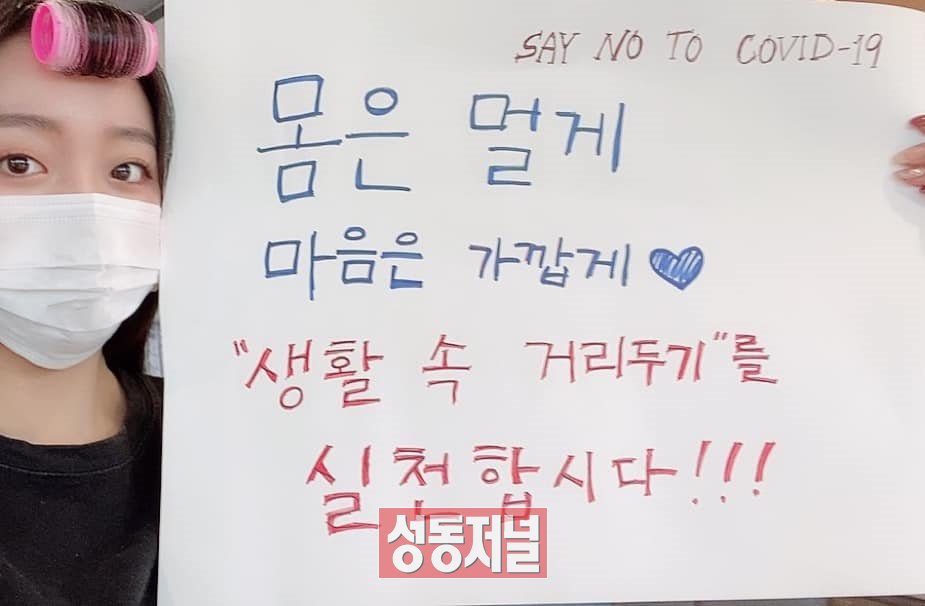 SAY NO TO COVID-19
몸은 멀게
마음은 가깝게
"생활 속 거리두기"를
실천합시다!!!
성동저널